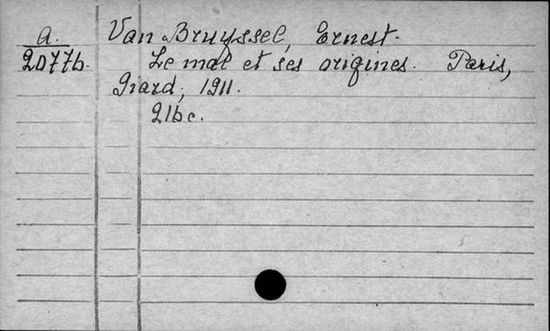 A. Van Bruyssel, Ernest.
20776. Le mal et ses origines. Paris,
Giard, 1911.
216 c.